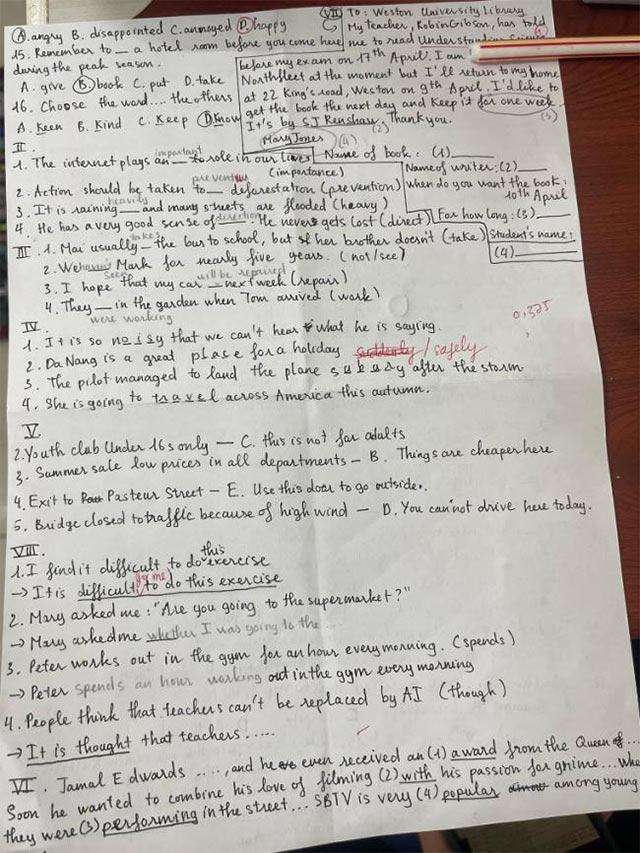 A. angry B. disappointed C. annoyed D. happy
15. Remember to __ a hotel room before you come here
during the peak season.
A. give B. book C. put D. take
16. Choose the word.... the others
A. Keen B. Kind C. Keep D. Know
VII To: Weston University Library
My teacher, Robin Gibson, has told
me to read Understanding Science
(1)
before my exam on 17th April. I am
Northfleet at the moment but I'll return to my home
at 22 King's road, Weston on 9th April. I'd like to
get the book the next day and keep it for one week.
(3)
It's by SJ Renshaw. Thank you.
(2)
Mary Jones
(4)
Name of book: (1)____
Name of writer: (2)____
When do you want the book:
10th April
For how long: (3)____
Student's name:
(4)____
II.
1. The internet plays an __ role in our lives
important
(importance)
2. Action should be taken to __ deforestation (prevention)
prevent
3. It is raining __ and many streets are flooded (heavy)
heavily
4. He has a very good sense of __. He never gets lost (direct)
direction
III. 1. Mai usually __ the bus to school, but her brother doesn't (take)
takes
2. We haven't Mark for nearly five years. (not/see)
seen
3. I hope that my car __ next week (repair)
will be repaired
4. They __ in the garden when Tom arrived (work)
were working
IV.
1. It is so noisy that we can't hear what he is saying.
0,325
2. Da Nang is a great place for a holiday
suddenly / safely
3. The pilot managed to land the plane s after the storm
4. She is going to travel across America this autumn.
V.
2. Youth club Under 16s only — C. this is not for adults
3. Summer sale low prices in all departments – B. Things are cheaper here
4. Exit to Pasteur Street – E. Use this door to go outside.
5. Bridge closed to traffic because of high wind – D. You cannot drive here today.
VIII.
1. I find it difficult to do this exercise
→ It is difficult for me to do this exercise
2. Mary asked me: "Are you going to the supermarket?"
→ Mary asked me whether I was going to the...
3. Peter works out in the gym for an hour every morning. (spends)
→ Peter spends an hour working out in the gym every morning
4. People think that teachers can't be replaced by AI (though)
→ It is thought that teachers.....
VI. Jamal Edwards ...., and he even received an (1) award from the Queen of...
Soon he wanted to combine his love of filming (2) with his passion for grime... When
they were (3) performing in the street... SBTV is very (4) popular among young